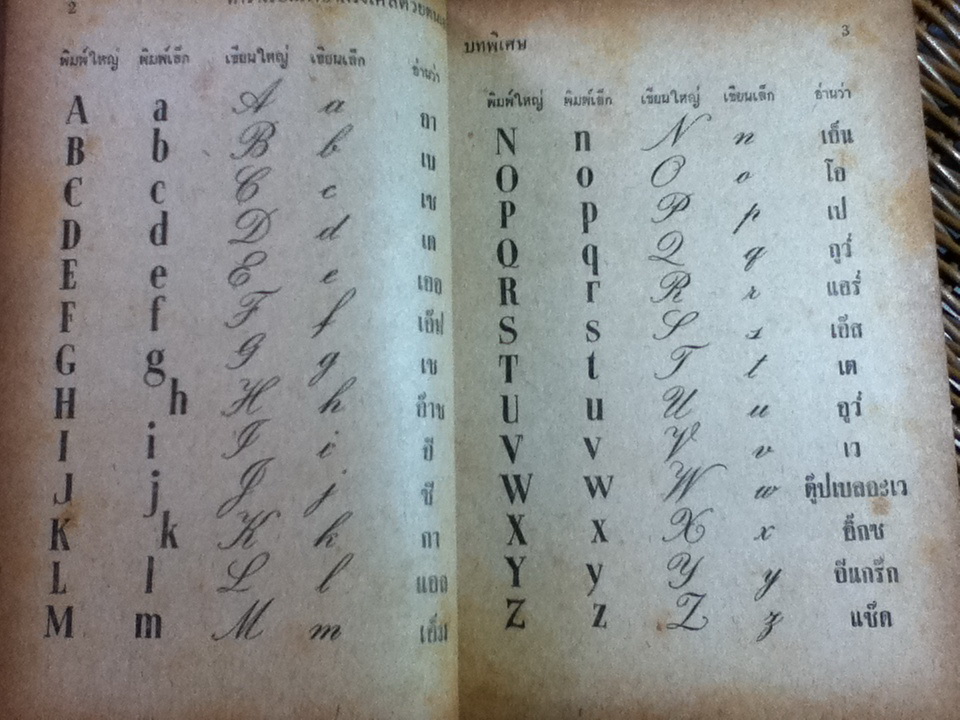 2
พิมพ์ใหญ่ พิมพ์เล็ก เขียนใหญ่ เขียนเล็ก อ่านว่า
A a A a อา
B b B b เบ
C c C c เซ
D d D d เด
E e E e เออ
F f F f เอ็ฟ
G g G g เช
H h H h อ๊าช
I i I i อี
J j J j ชี
K k K k กา
L l L l แอล
M m M m เอ็ม
บทพิเศษ 3
พิมพ์ใหญ่ พิมพ์เล็ก เขียนใหญ่ เขียนเล็ก อ่านว่า
N n N n เอ็น
O o O o โอ
P p P p เป
Q q Q q กูว์
R r R r แอร์
S s S s เอ็ส
T t T t เต
U u U u อูว์
V v V v เว
W w W w ดุ๊ปเบลอะเว
X x X x อิ๊กซ
Y y Y y อีแกร๊ก
Z z Z z แซ๊ด